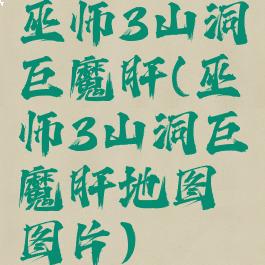 巫师3山洞
巨魔肝(巫
师3山洞巨
魔肝地图
图片)